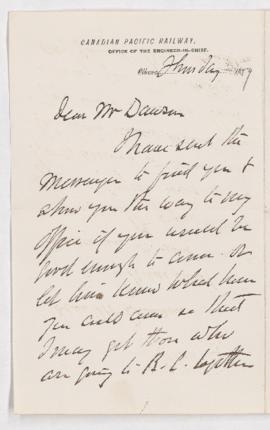 CANADIAN PACIFIC RAILWAY,
OFFICE OF THE ENGINEER-IN-CHIEF,
Ottawa, Thursday 1879
Dear Mr Dawson
I have sent the
messenger to find you &
show you the way to my
office if you would be
good enough to come or
let him know what hour
you could come so that
I may get those who
are going to B. C. together